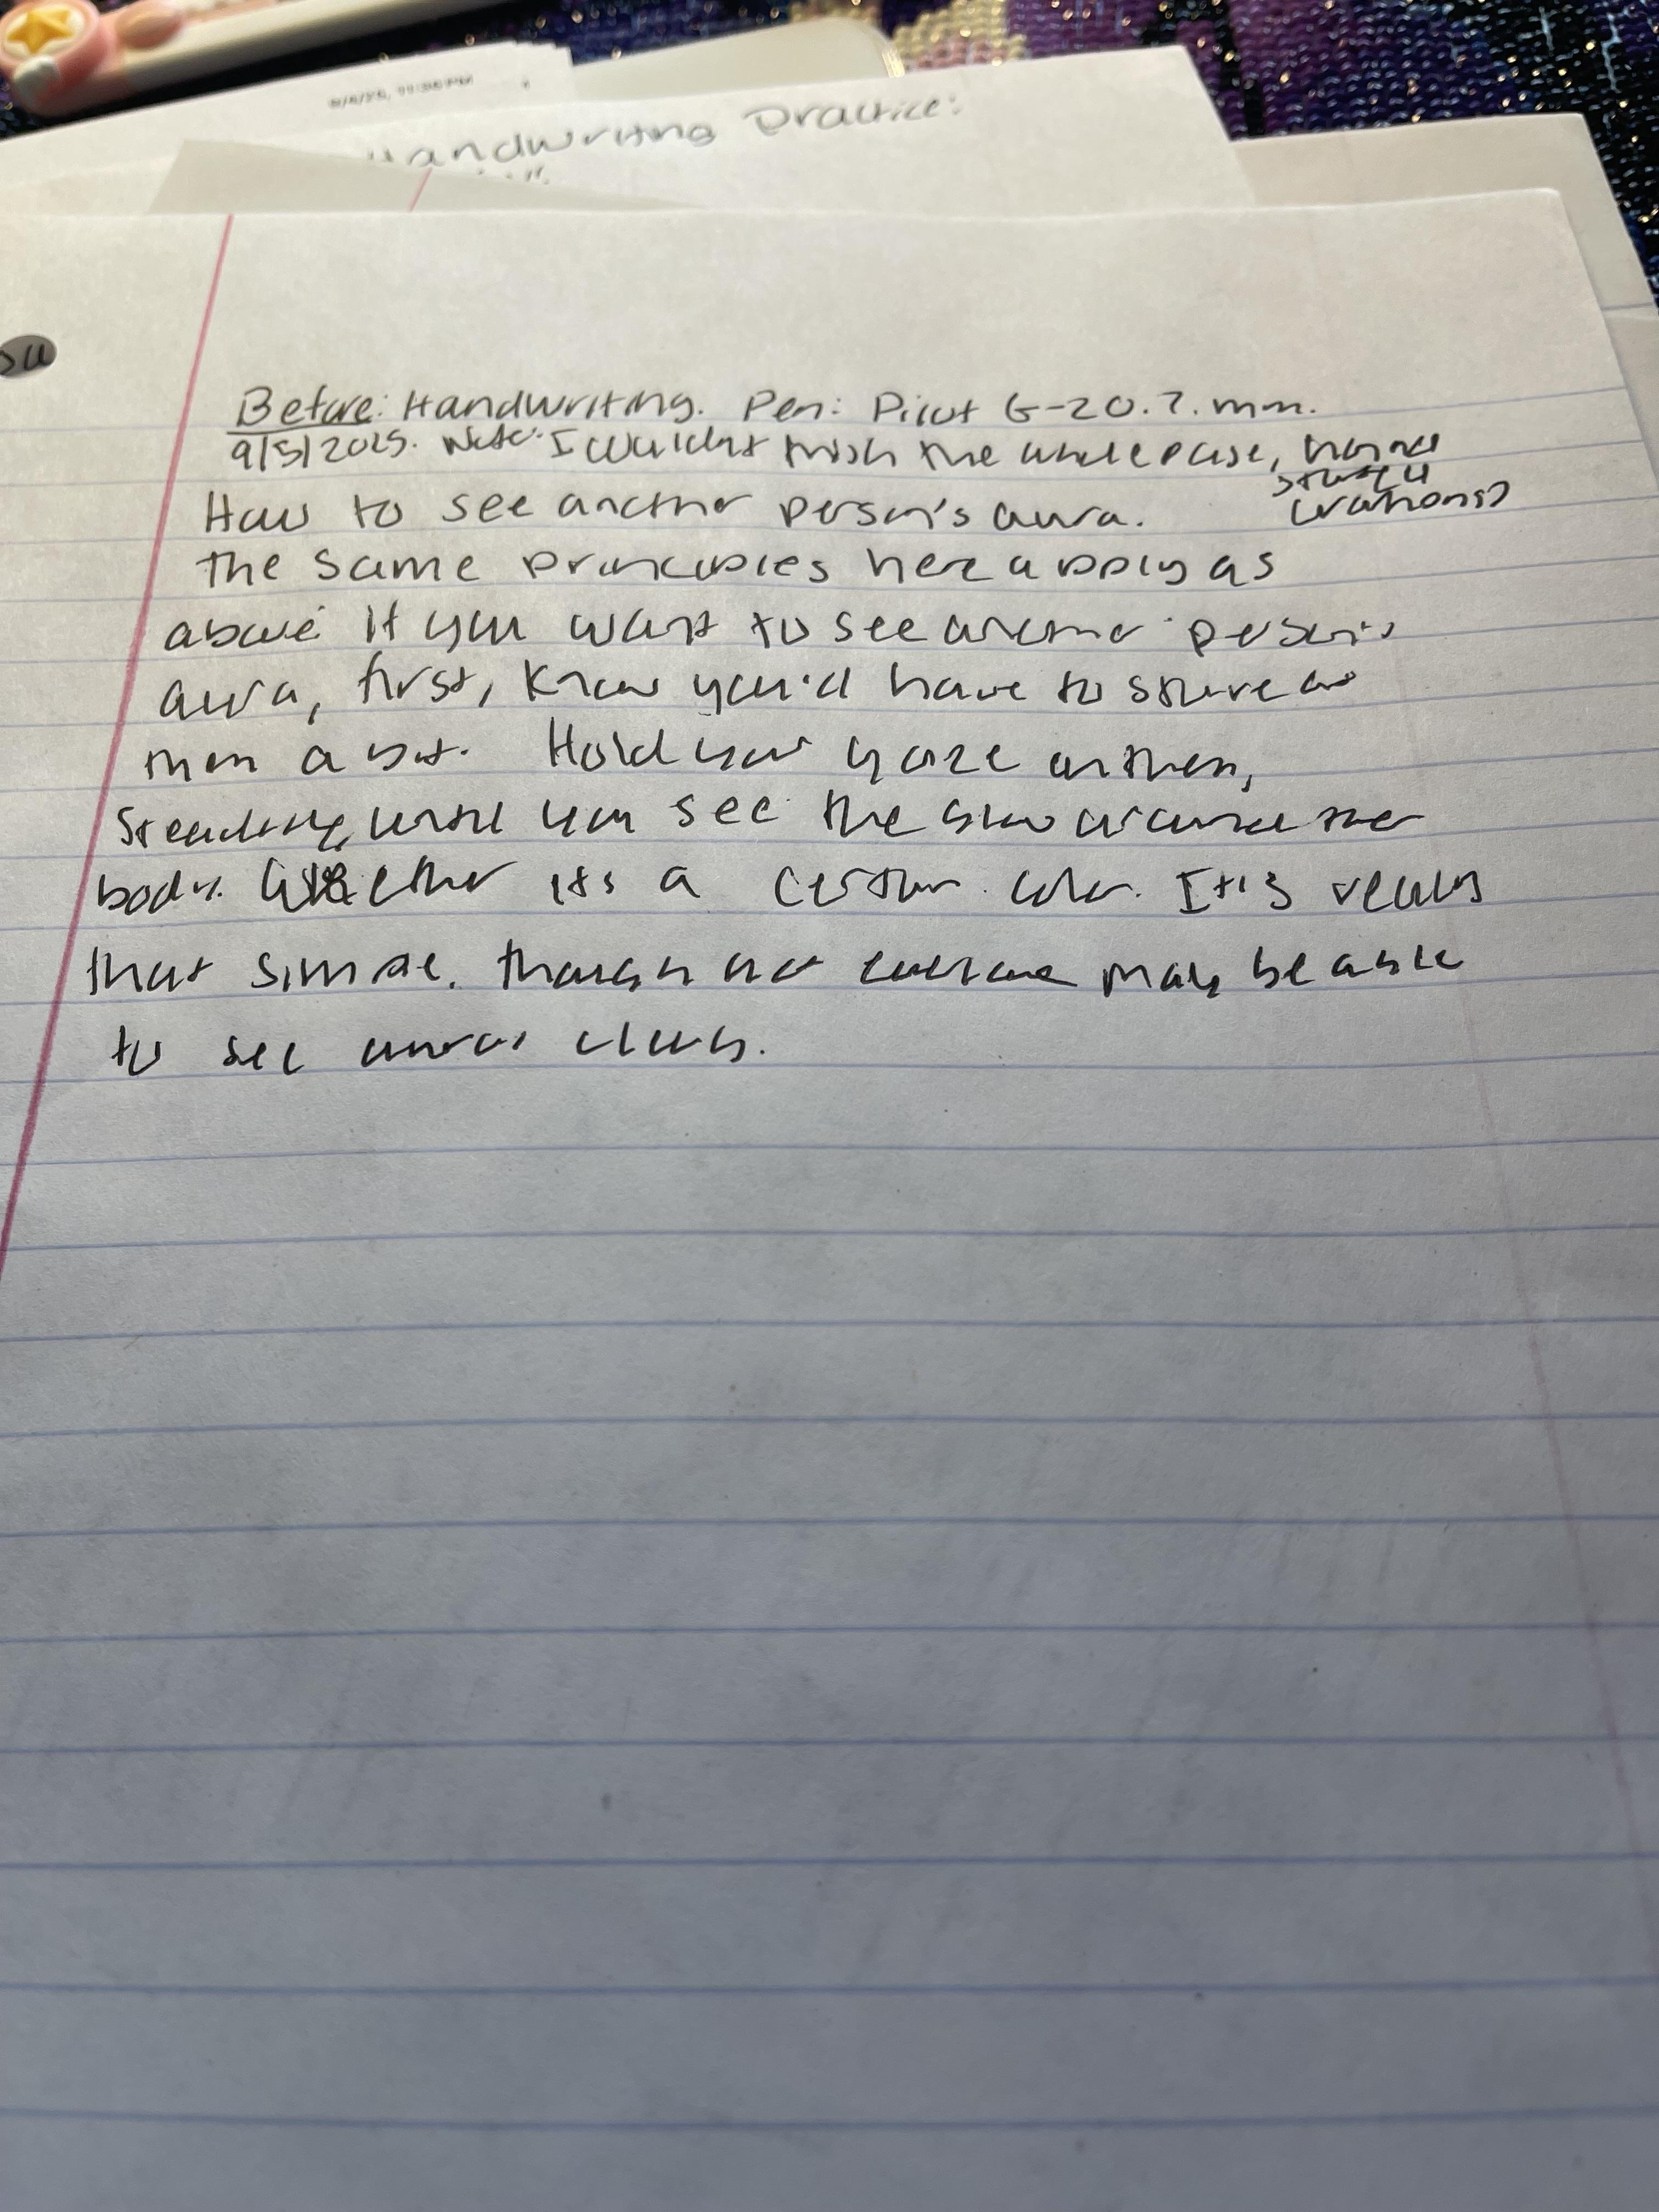 11:36 PM
Handwriting Practice:
Before: Handwriting. Pen: Pilot G-2 0.7. mm.
9/5/2025. Note: I couldn't finish the whole page, hand
How to see another person's aura.
The same principles here apply as
above. If you want to see another person's
aura, first, know you'd have to stare at
them a bit. Hold your gaze on them,
steadily, until you see the glow around the
body. Whether it's a certain color. It's really
that simple. Though not everyone may be able
to see auras clearly.